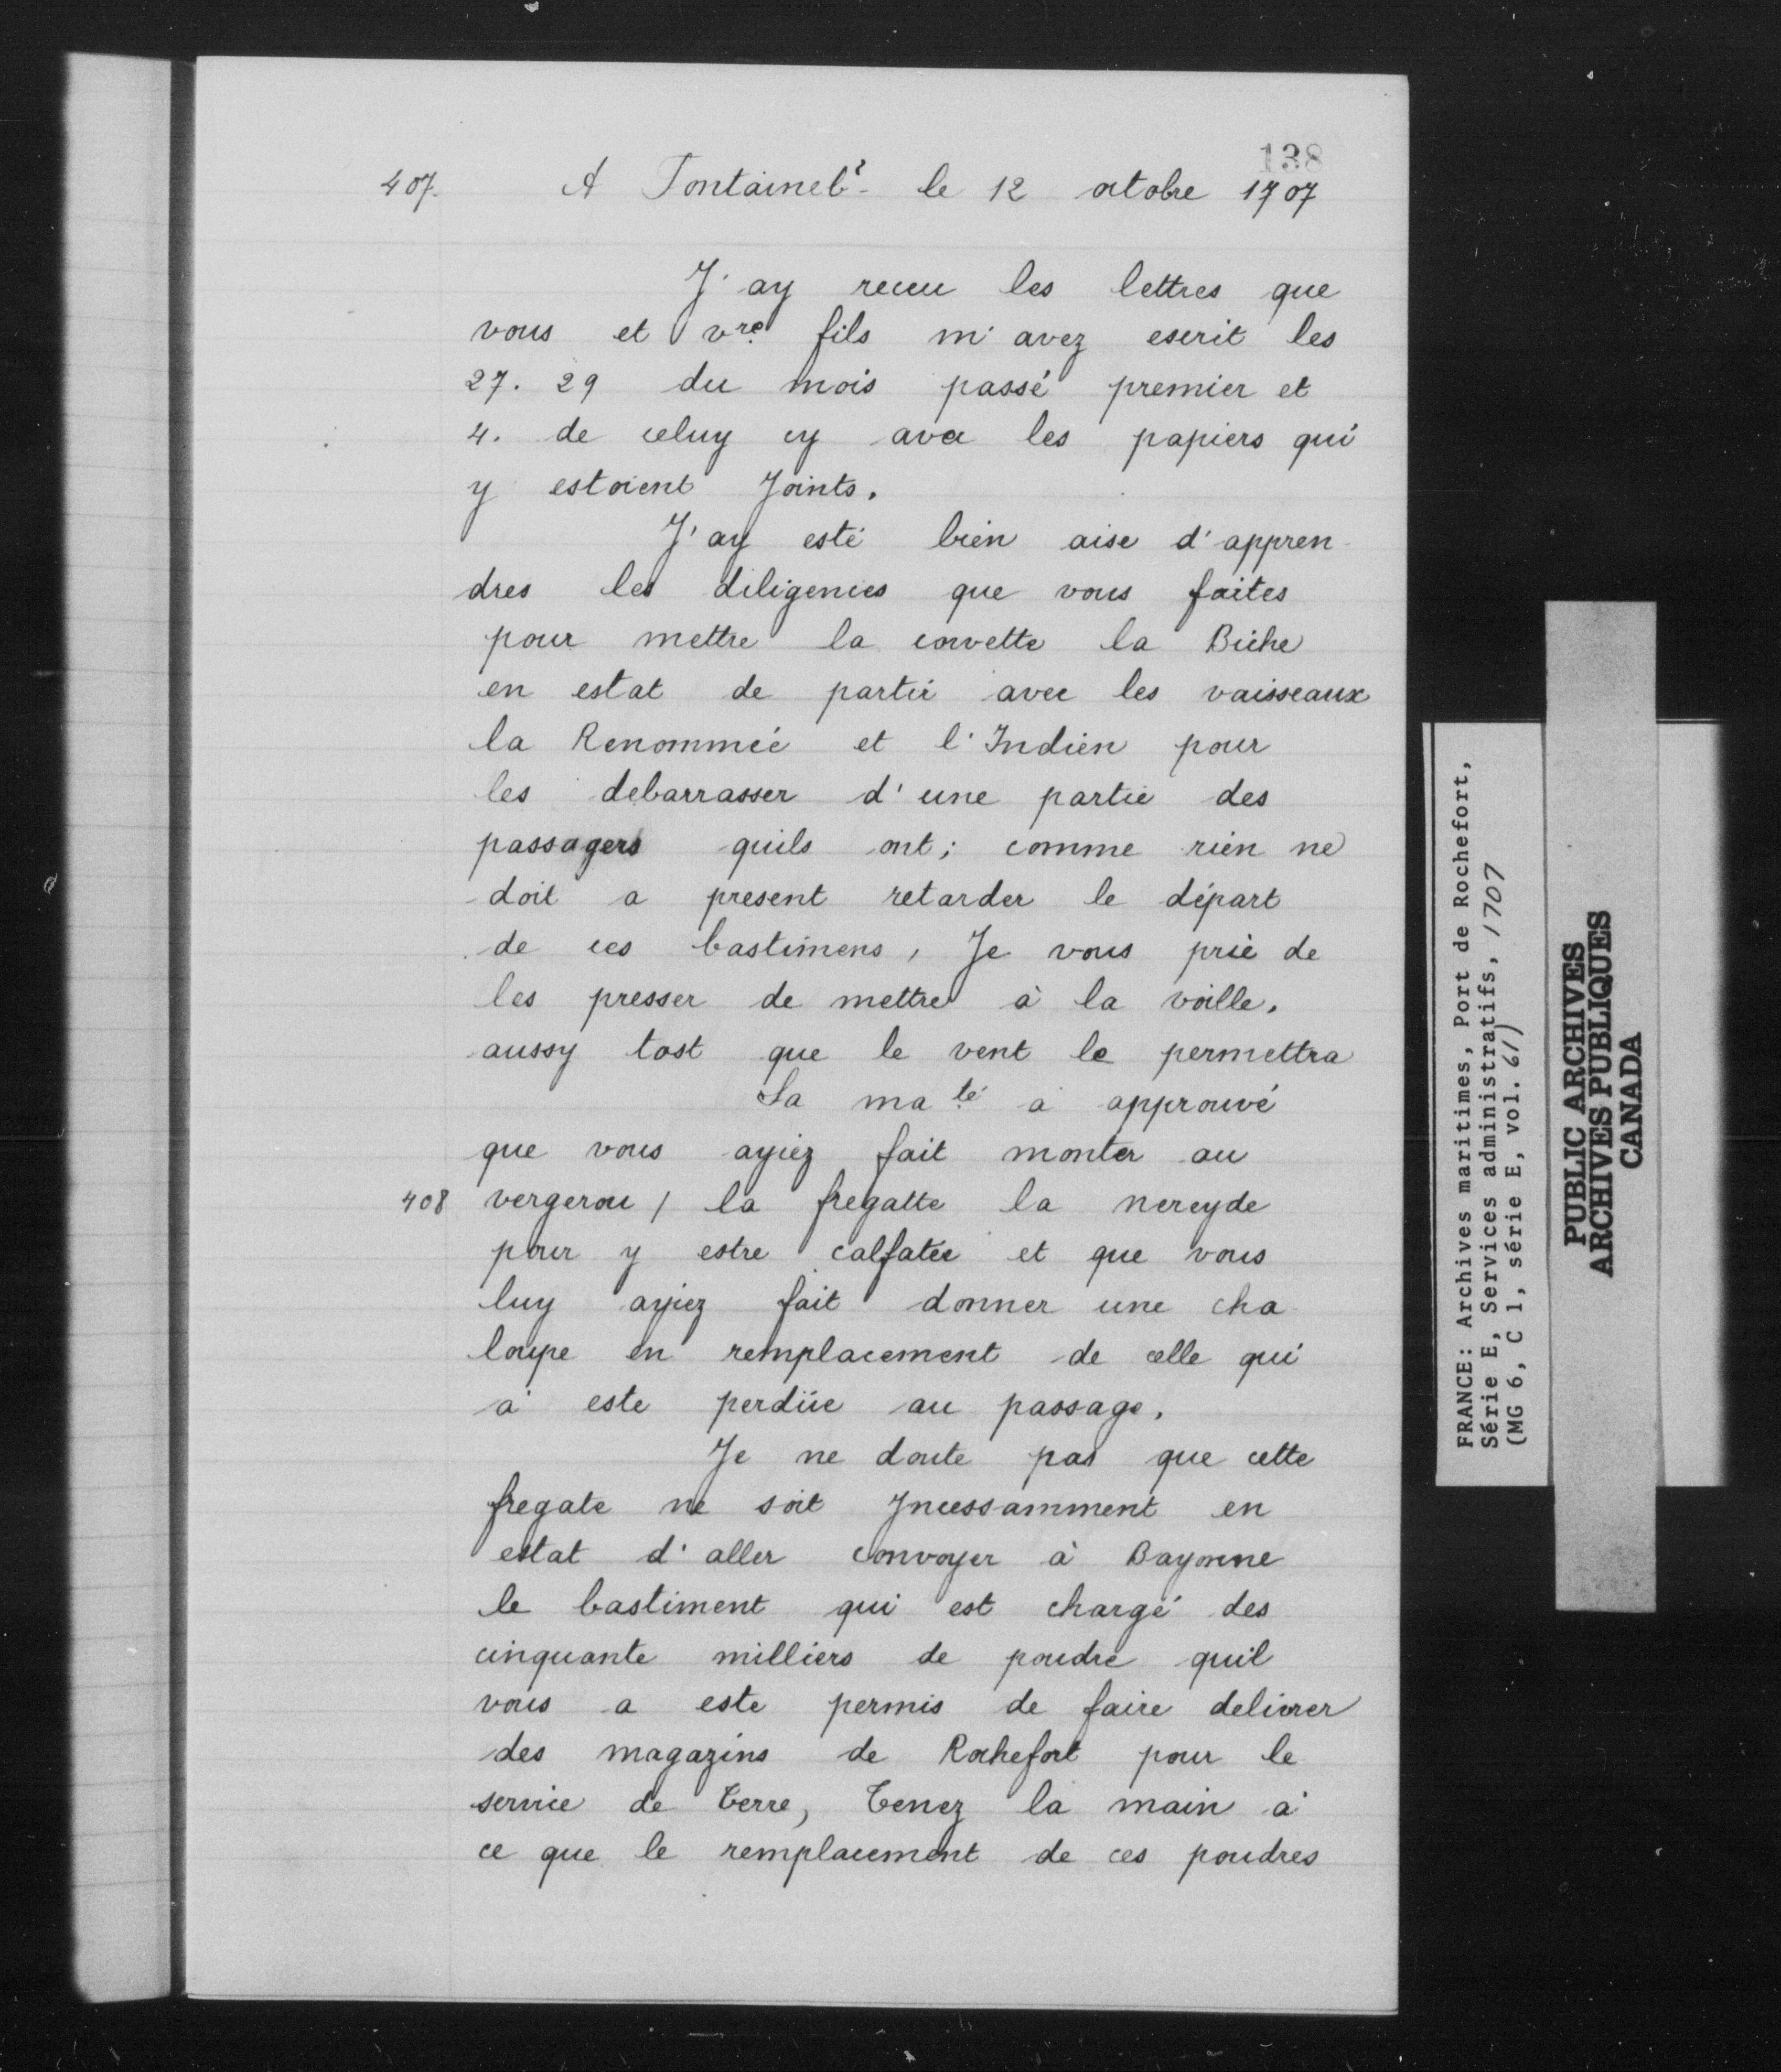 138
407. A Fontainebᵉ le 12 octobre 1707
J'ay receu les lettres que
vous et vre fils m'avez escrit les
27. 29 du mois passé premier et
4. de celuy cy avec les papiers qui
y estoient Joints.
J'ay esté bien aise d'appren-
dres les diligences que vous faites
pour mettre la corvette la Biche
en estat de partir avec les vaisseaux
la Renommée et l'Indien pour
les debarrasser d'une partie des
passagers quils ont; comme rien ne
doit a present retarder le départ
de ces bastimens, Je vous prie de
les presser de mettre à la voille,
aussy tost que le vent le permettra
Sa maté a approuvé
que vous ayiez fait monter au
408 vergerou / la fregatte la nereyde
pour y estre calfatée et que vous
luy ayiez fait donner une cha-
loupe en remplacement de celle qui
à este perdüe au passage.
Je ne doute pas que cette
fregate ne soit Jncessamment en
estat d'aller convoyer à Bayonne
le bastiment qui est chargé des
cinquante milliers de poudre quil
vous a este permis de faire delivrer
des magazins de Rochefort pour le
service de terre, tenez la main à
ce que le remplacement de ces poudres
FRANCE: Archives maritimes, Port de Rochefort,
Série E, Services administratifs, 1707
(MG 6, C 1, série E, vol. 611)
PUBLIC ARCHIVES
ARCHIVES PUBLIQUES
CANADA